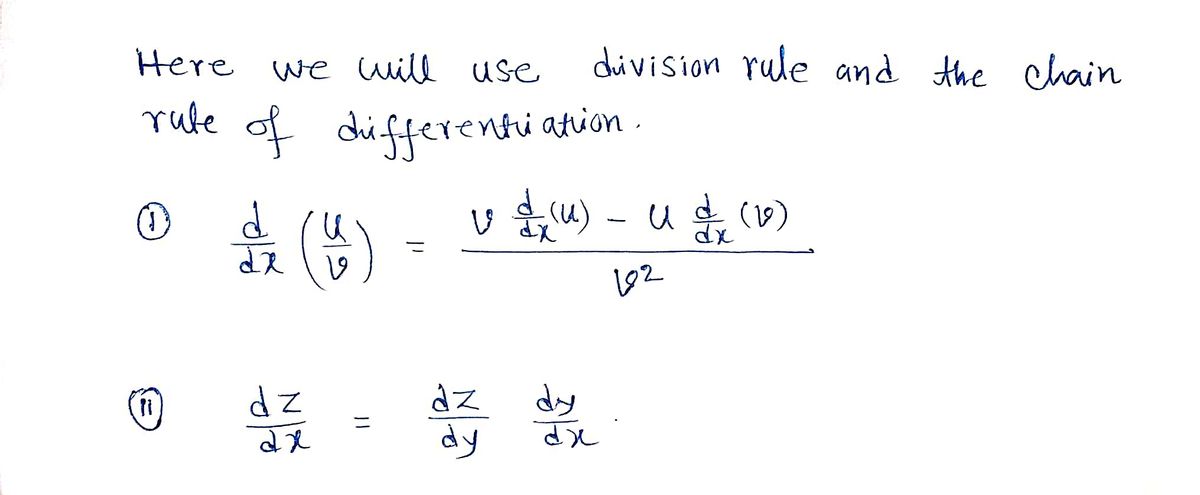 Here we will use division rule and the chain
rule of differentiation.
(i) d/dx (u/v) = (v d/dx (u) - u d/dx (v)) / v²
(ii) dz/dx = dz/dy dy/dx.